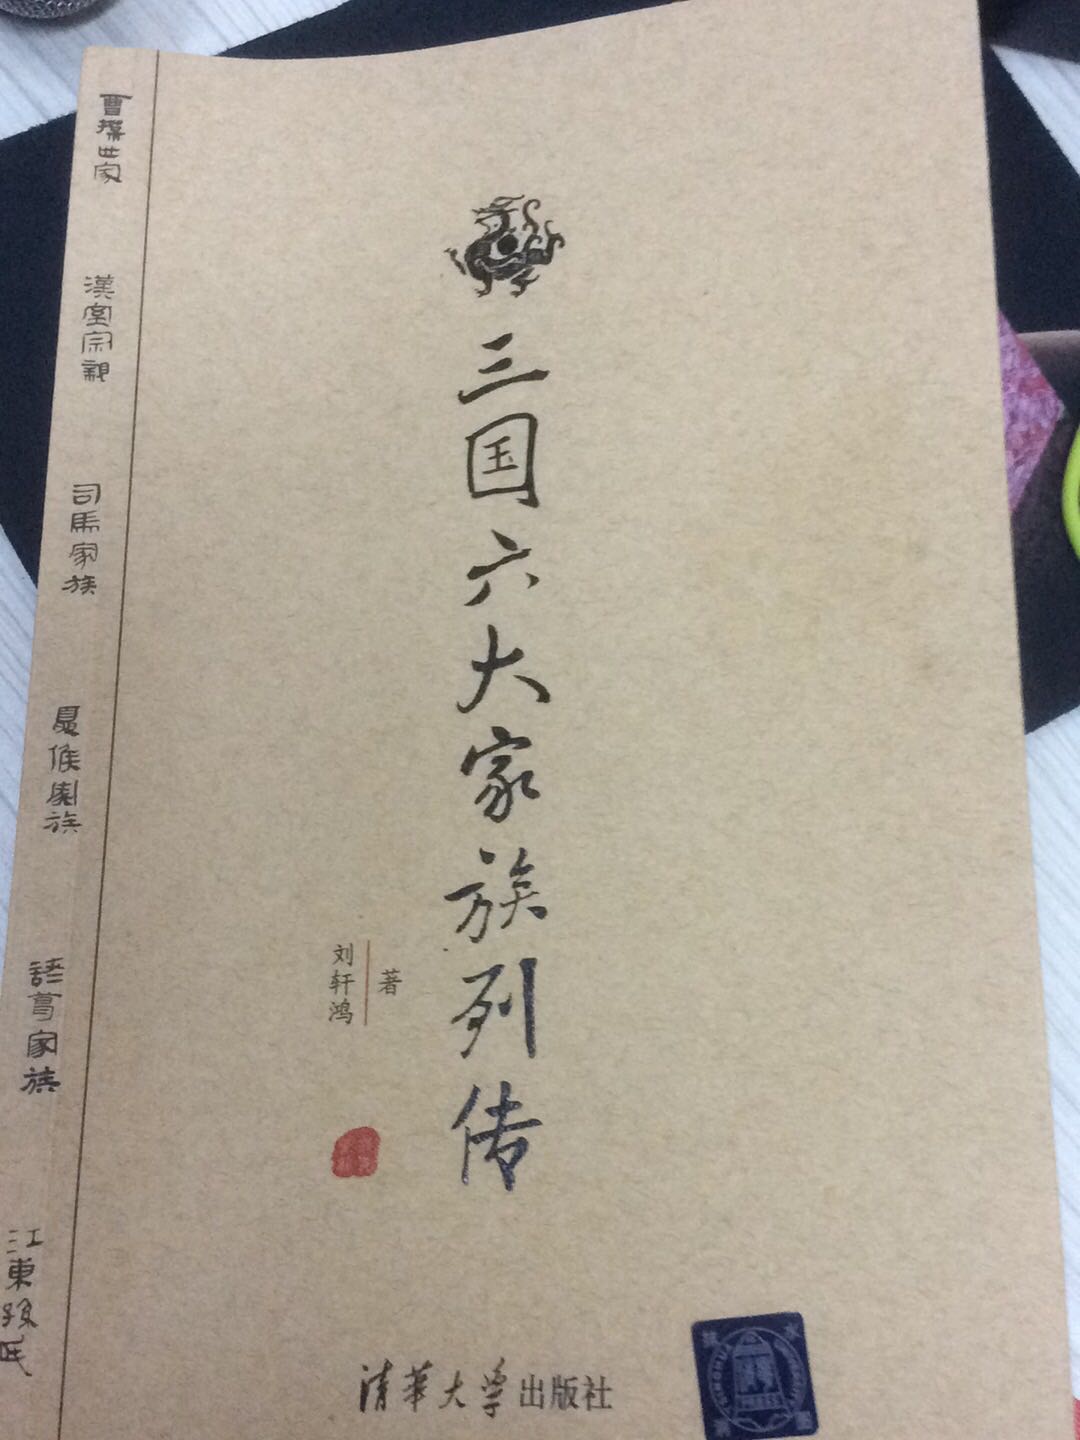 曹操世家
漢室宗親
司馬家族
夏侯家族
諸葛家族
江東孫氏
三国六大家族列传
刘轩鸿
著
清華大学出版社